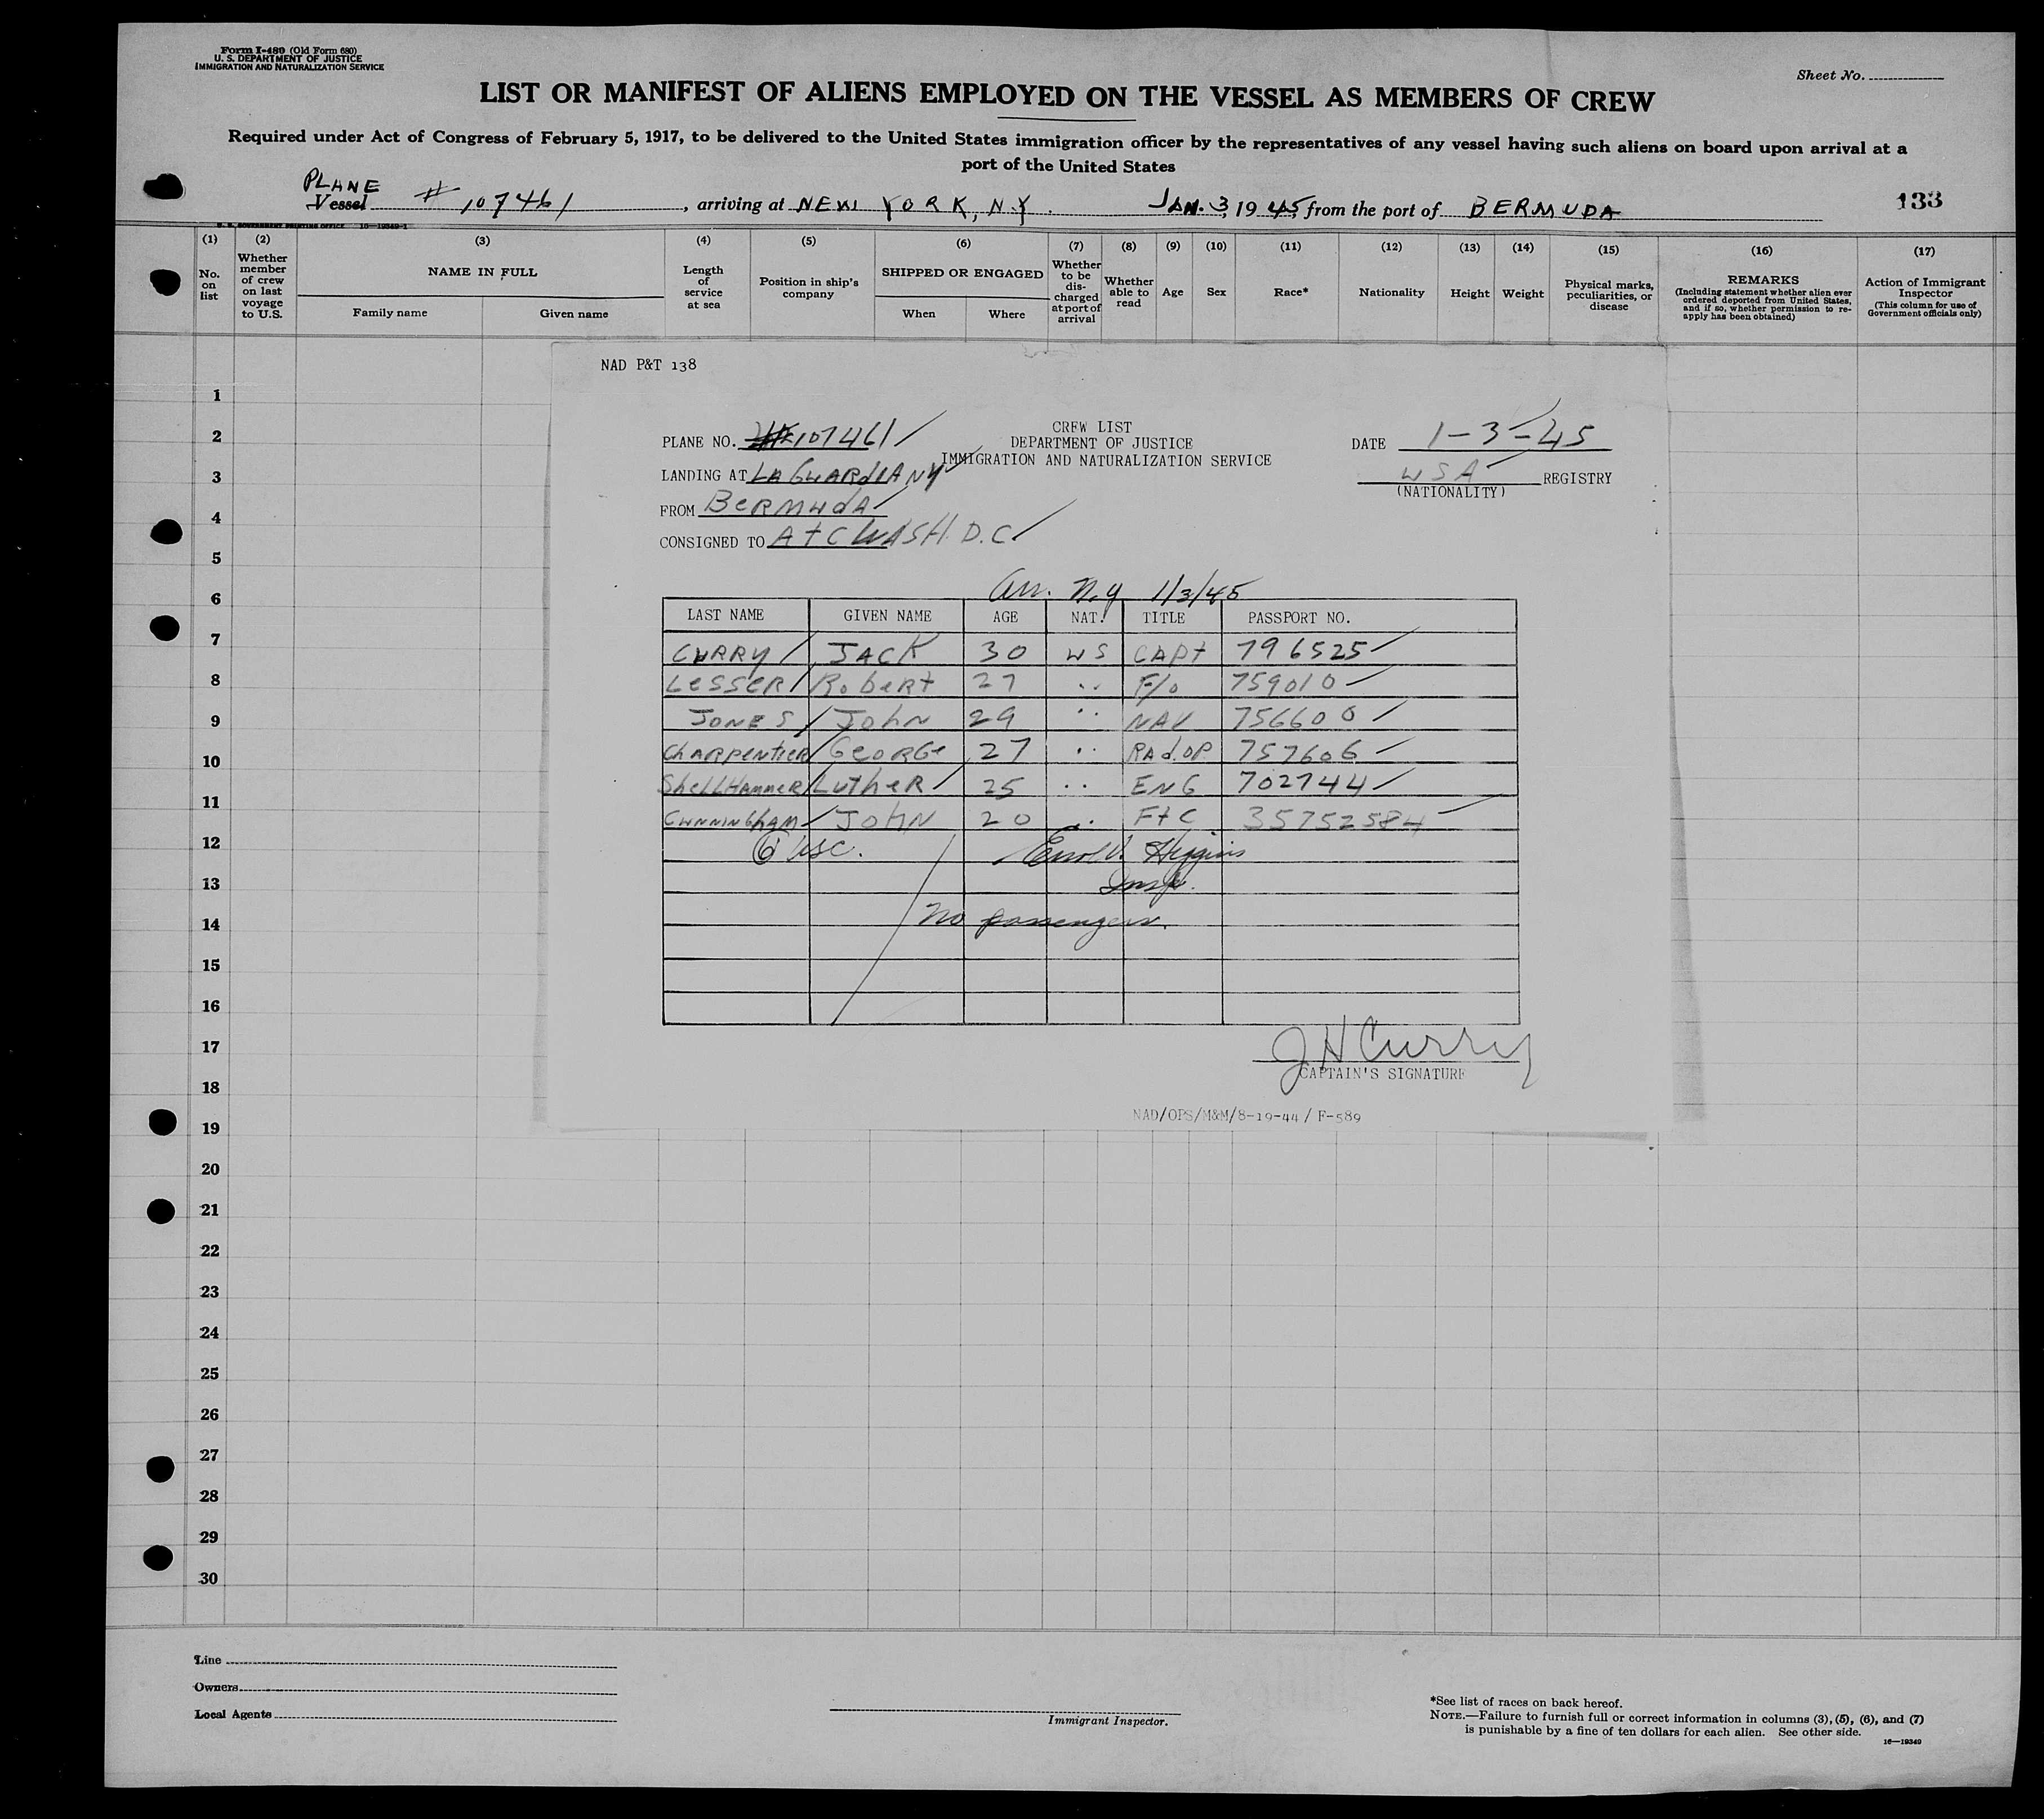 Form I-489 (Old Form 680)
U. S. DEPARTMENT OF JUSTICE
IMMIGRATION AND NATURALIZATION SERVICE
Sheet No.
LIST OR MANIFEST OF ALIENS EMPLOYED ON THE VESSEL AS MEMBERS OF CREW
Required under Act of Congress of February 5, 1917, to be delivered to the United States immigration officer by the representatives of any vessel having such aliens on board upon arrival at a
port of the United States
PLANE
Vessel # 107461, arriving at NEW YORK, N.Y. JAN. 3, 1945, from the port of BERMUDA
133
U. S. GOVERNMENT PRINTING OFFICE 16-19349-1
(1) (2) (3) (4) (5) (6) (7) (8) (9) (10) (11) (12) (13) (14) (15) (16) (17)
No. on list
Whether member of crew on last voyage to U.S.
NAME IN FULL
Family name
Given name
Length of service at sea
Position in ship's company
SHIPPED OR ENGAGED
When
Where
Whether to be discharged at port of arrival
Whether able to read
Age
Sex
Race*
Nationality
Height
Weight
Physical marks, peculiarities, or disease
REMARKS
(Including statement whether alien ever ordered deported from United States, and if so, whether permission to re-apply has been obtained)
Action of Immigrant Inspector
(This column for use of Government officials only)
NAD P&T 138
CREW LIST
DEPARTMENT OF JUSTICE
IMMIGRATION AND NATURALIZATION SERVICE
PLANE NO. 107461
LANDING AT LA GUARDIA NY
FROM BERMUDA
CONSIGNED TO ATC WASH. D.C.
DATE 1-3-45
USA REGISTRY
(NATIONALITY)
Arr. N.Y 1/3/45
LAST NAME GIVEN NAME AGE NAT. TITLE PASSPORT NO.
CURRY JACK 30 US CAPT 796525
LESSER ROBERT 27 " F/O 759010
JONES JOHN 29 " NAV 756600
CHARPENTIER GEORGE 27 " RAD.OP. 757606
SHELLHAMMER LUTHER 25 " ENG 702744
CUNNINGHAM JOHN 20 " FtC 35752584
6 USC.
Higgins
Insp.
No passengers.
J H Curry
CAPTAIN'S SIGNATURE
NAD/OPS/M&M/8-19-44 / F-589
1
2
3
4
5
6
7
8
9
10
11
12
13
14
15
16
17
18
19
20
21
22
23
24
25
26
27
28
29
30
Line
Owners
Local Agents
Immigrant Inspector.
*See list of races on back hereof.
NOTE.—Failure to furnish full or correct information in columns (3), (5), (6), and (7)
is punishable by a fine of ten dollars for each alien. See other side.
16—19349